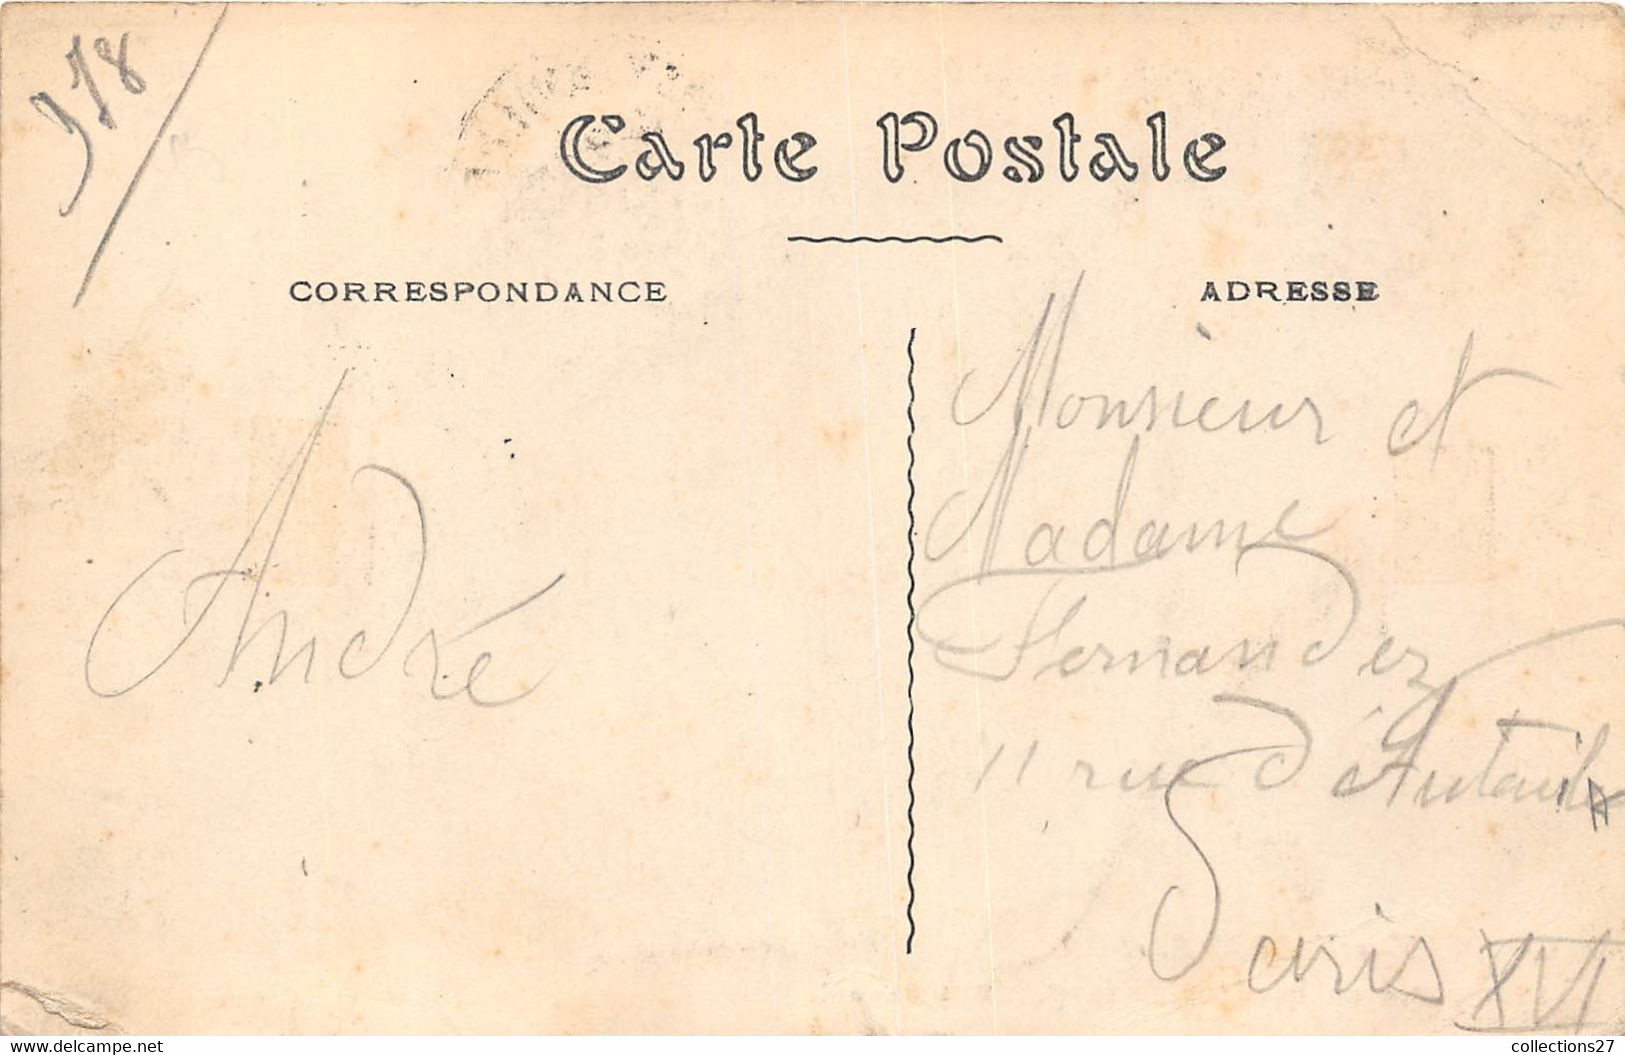 978
Carte Postale
CORRESPONDANCE
ADRESSE
André
Monsieur et
Madame
Fernandez
11 rue d'Auteuil
Paris XVI
delcampe.net
collections27